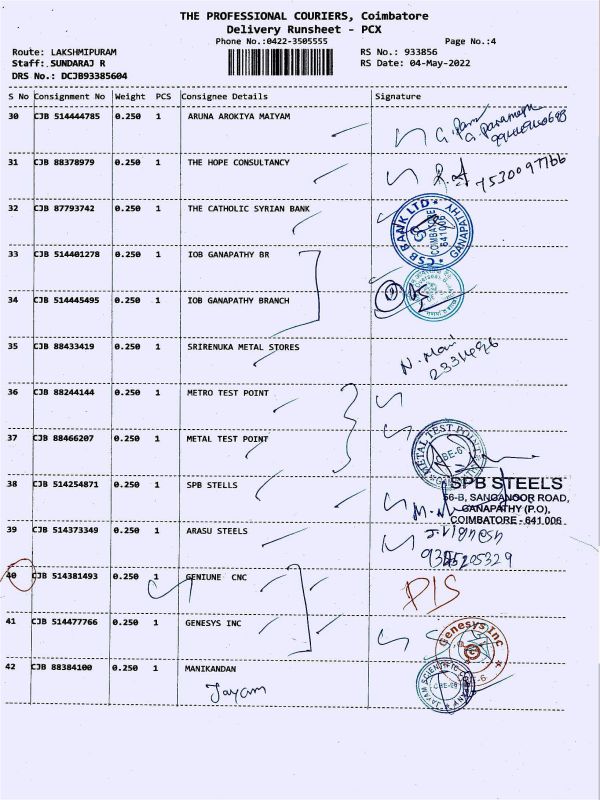 THE PROFESSIONAL COURIERS, Coimbatore
Delivery Runsheet - PCX
Phone No.:0422-3505555 Page No.:4
Route: LAKSHMIPURAM RS No.: 933856
Staff: SUNDARAJ R RS Date: 04-May-2022
DRS No.: DCJB93385604
S No Consignment No Weight PCS Consignee Details Signature
30 CJB 514444785 0.250 1 ARUNA AROKIYA MAIYAM
31 CJB 88378979 0.250 1 THE HOPE CONSULTANCY
7530097766
32 CJB 87793742 0.250 1 THE CATHOLIC SYRIAN BANK
CSB BANK LTD
COIMBATORE
641006
GANAPATHY
33 CJB 514401278 0.250 1 IOB GANAPATHY BR
34 CJB 514445495 0.250 1 IOB GANAPATHY BRANCH
35 CJB 88433419 0.250 1 SRIRENUKA METAL STORES
N. Mani
36 CJB 88244144 0.250 1 METRO TEST POINT
37 CJB 88466207 0.250 1 METAL TEST POINT
METAL TEST POINT
CBE-6
38 CJB 514254871 0.250 1 SPB STELLS
SPB STEELS
56-B, SANGANOOR ROAD,
GANAPATHY (P.O),
COIMBATORE - 641 006
39 CJB 514373349 0.250 1 ARASU STEELS
J. Vignesh
40 CJB 514381493 0.250 1 GENIUNE CNC
41 CJB 514477766 0.250 1 GENESYS INC
Genesys Inc
42 CJB 88384100 0.250 1 MANIKANDAN
Jayam
JAYAM SCIENTIFIC